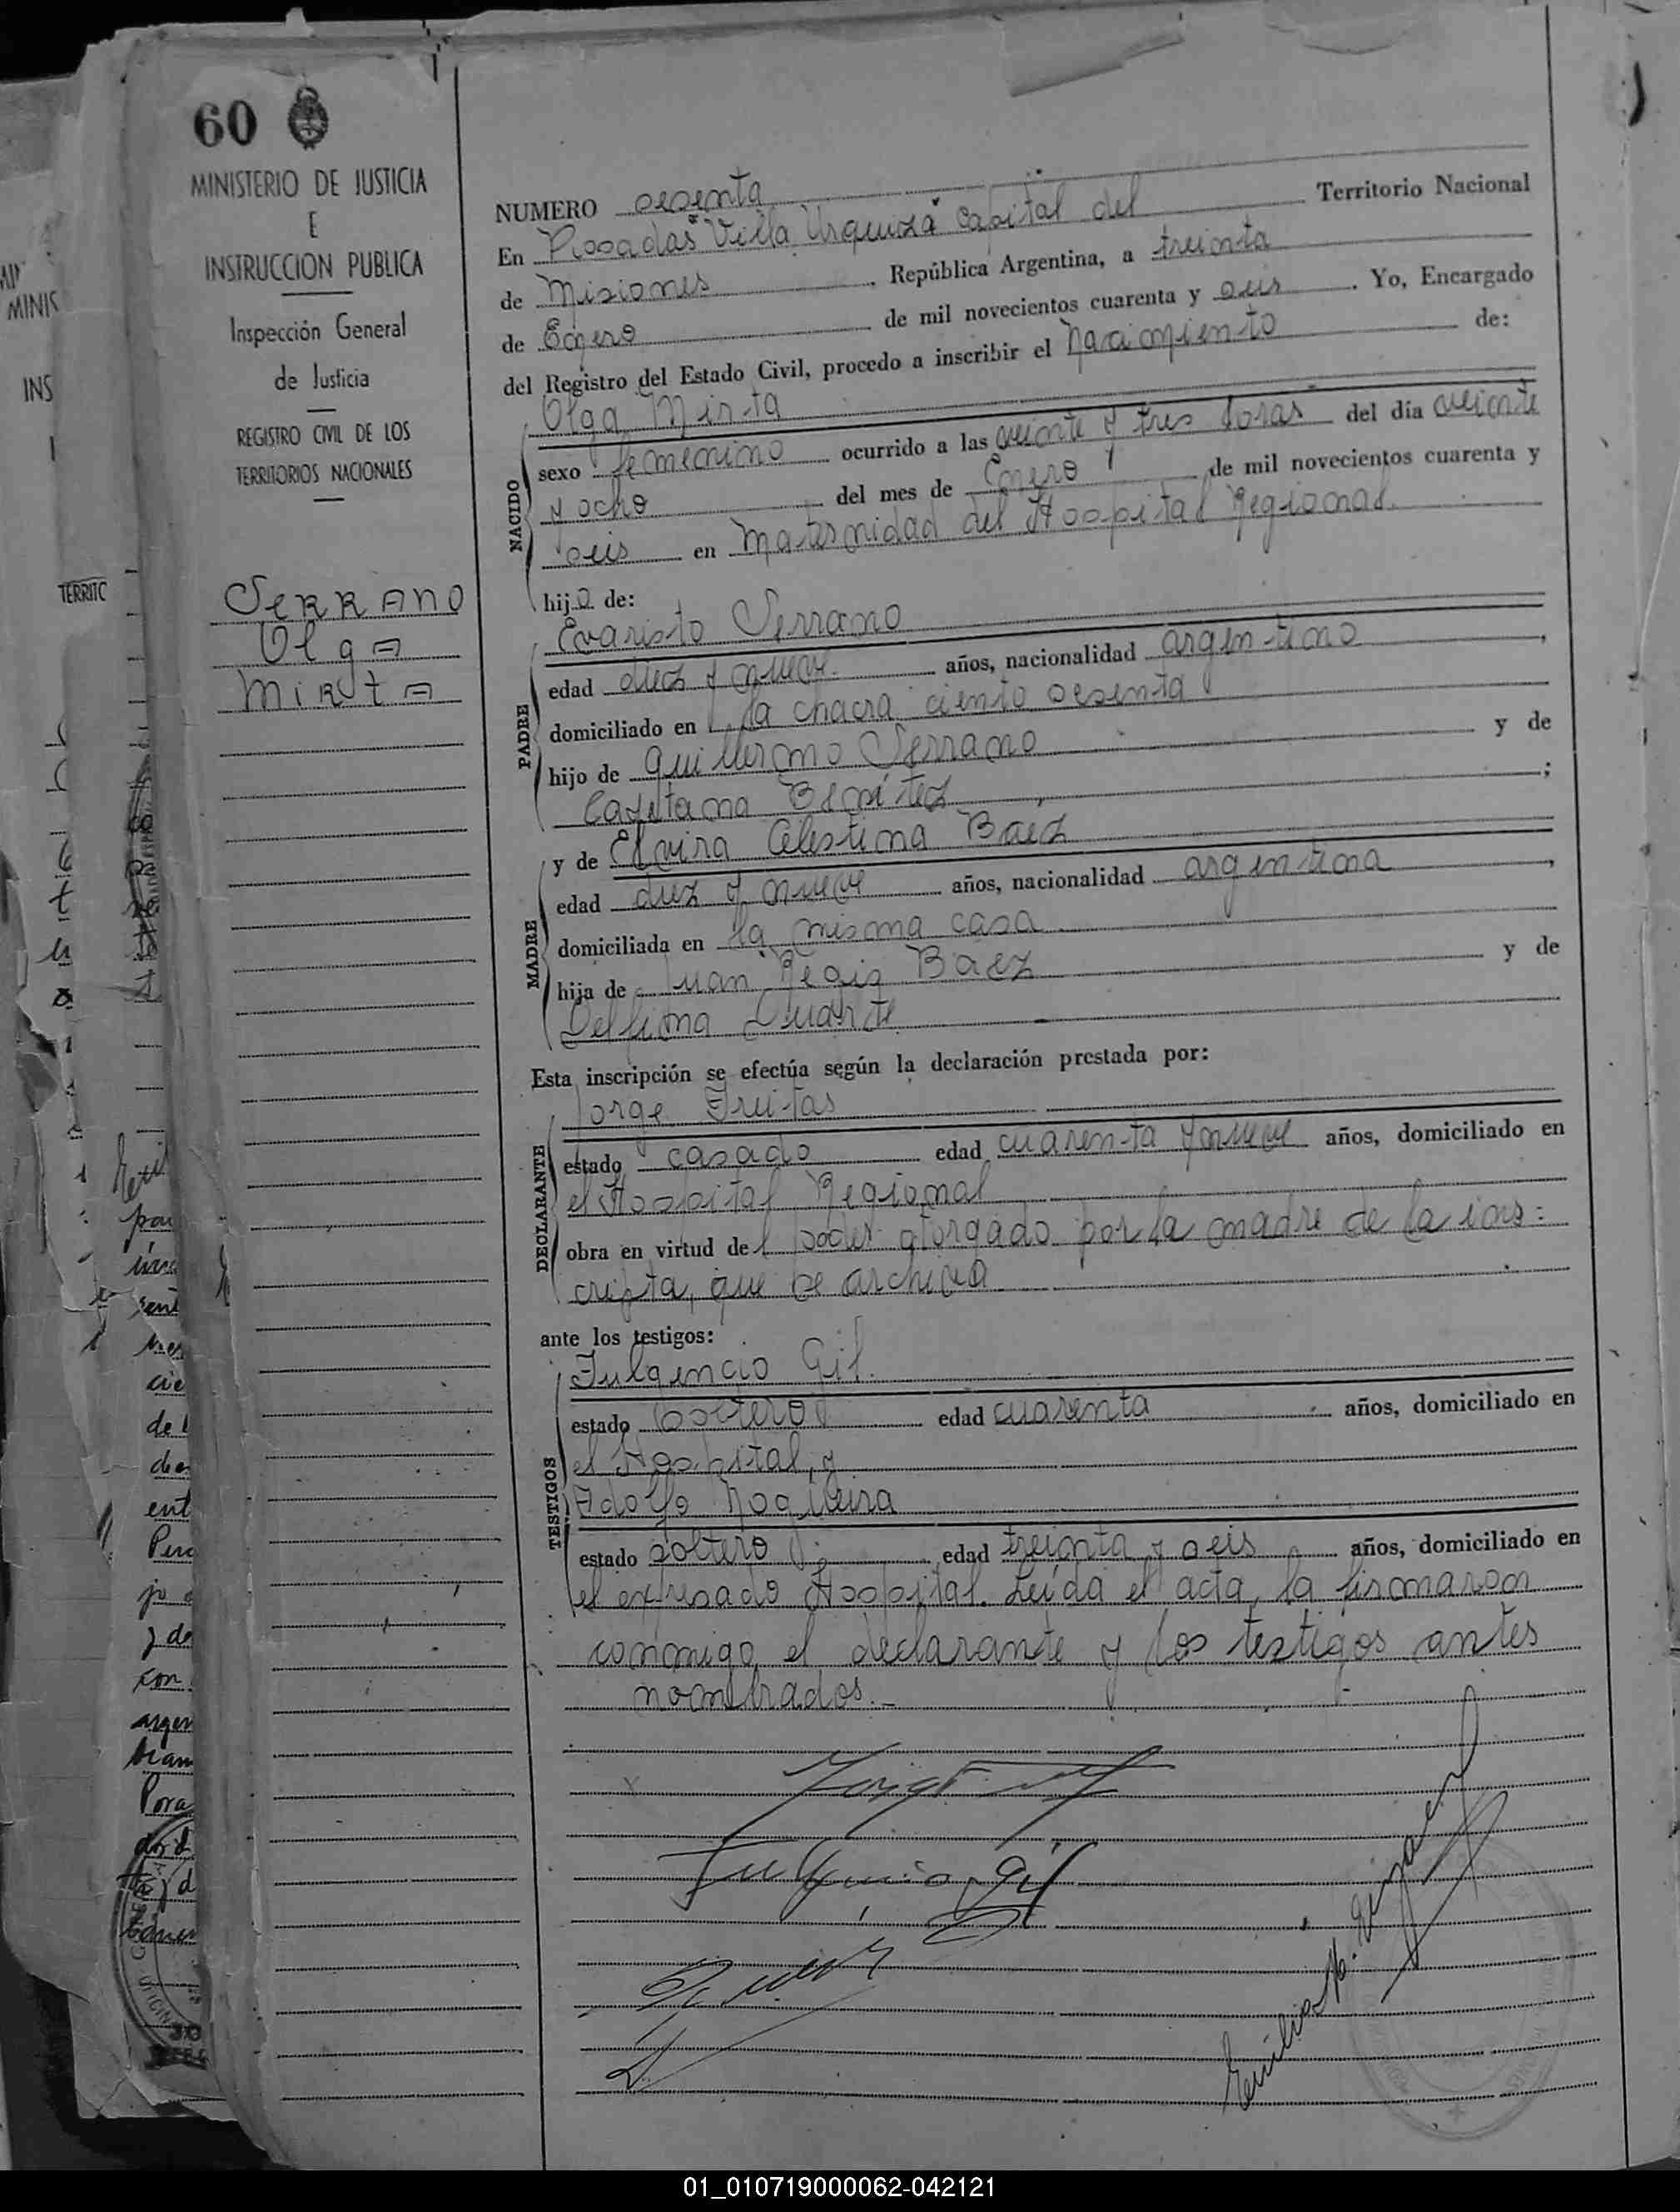 60
MINISTERIO DE JUSTICIA
E
INSTRUCCION PUBLICA
Inspección General
de Justicia
REGISTRO CIVIL DE LOS
TERRITORIOS NACIONALES
SERRANO
Olga
MIRTA
NUMERO sesenta
En Posadas "Villa Urquiza" Capital del Territorio Nacional
de Misiones, República Argentina, a treinta
de Enero de mil novecientos cuarenta y seis. Yo, Encargado
del Registro del Estado Civil, procedo a inscribir el Nacimiento de:
NACIDO
Olga Mirta
sexo femenino ocurrido a las veinte y tres horas del día veinte
y ocho del mes de Enero de mil novecientos cuarenta y
seis en Maternidad del Hospital Regional.
hija de:
PADRE
Evaristo Serrano
edad diez y nueve años, nacionalidad argentino,
domiciliado en la chacra ciento sesenta
hijo de Guillermo Serrano y de
Cayetana Benítez;
MADRE
y de Elvira Celestina Baez
edad diez y nueve años, nacionalidad argentina,
domiciliada en la misma casa
hija de Juan Regis Baez y de
Delfina Duarte
Esta inscripción se efectúa según la declaración prestada por:
DECLARANTE
Jorge Freitas
estado casado edad cuarenta y nueve años, domiciliado en
el Hospital Regional
obra en virtud del poder otorgado por la madre de la ins=
cripta, que se archiva
ante los testigos:
TESTIGOS
Fulgencio Gil.
estado soltero edad cuarenta años, domiciliado en
el Hospital, y
Adolfo Nogueira
estado soltero edad treinta y seis años, domiciliado en
el expresado Hospital. Leída el acta, la firmaron
conmigo el declarante y los testigos antes
nombrados.-
Fulgencio Gil
01_010719000062-042121